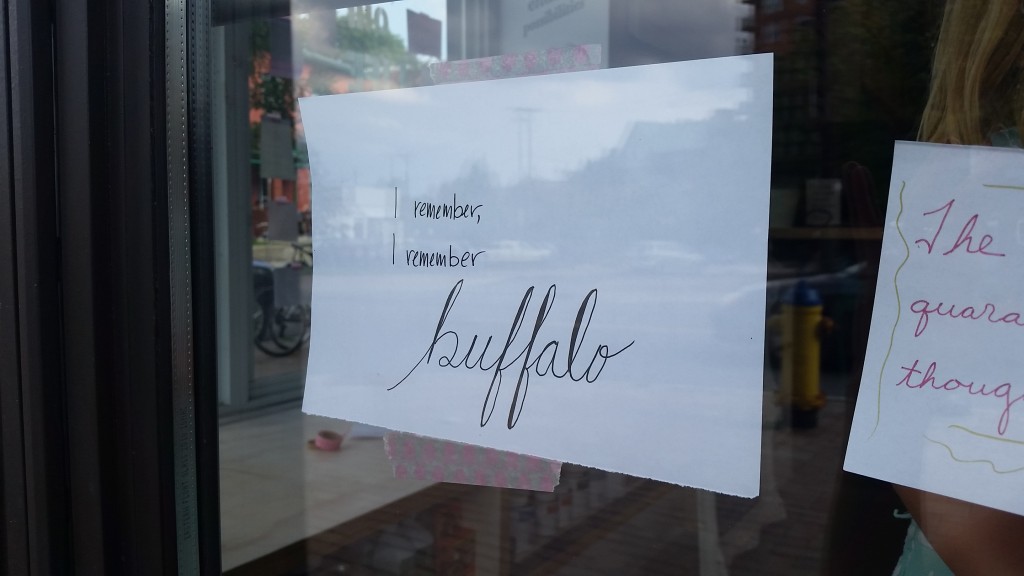 I remember,
I remember
buffalo
The
quara
thoug